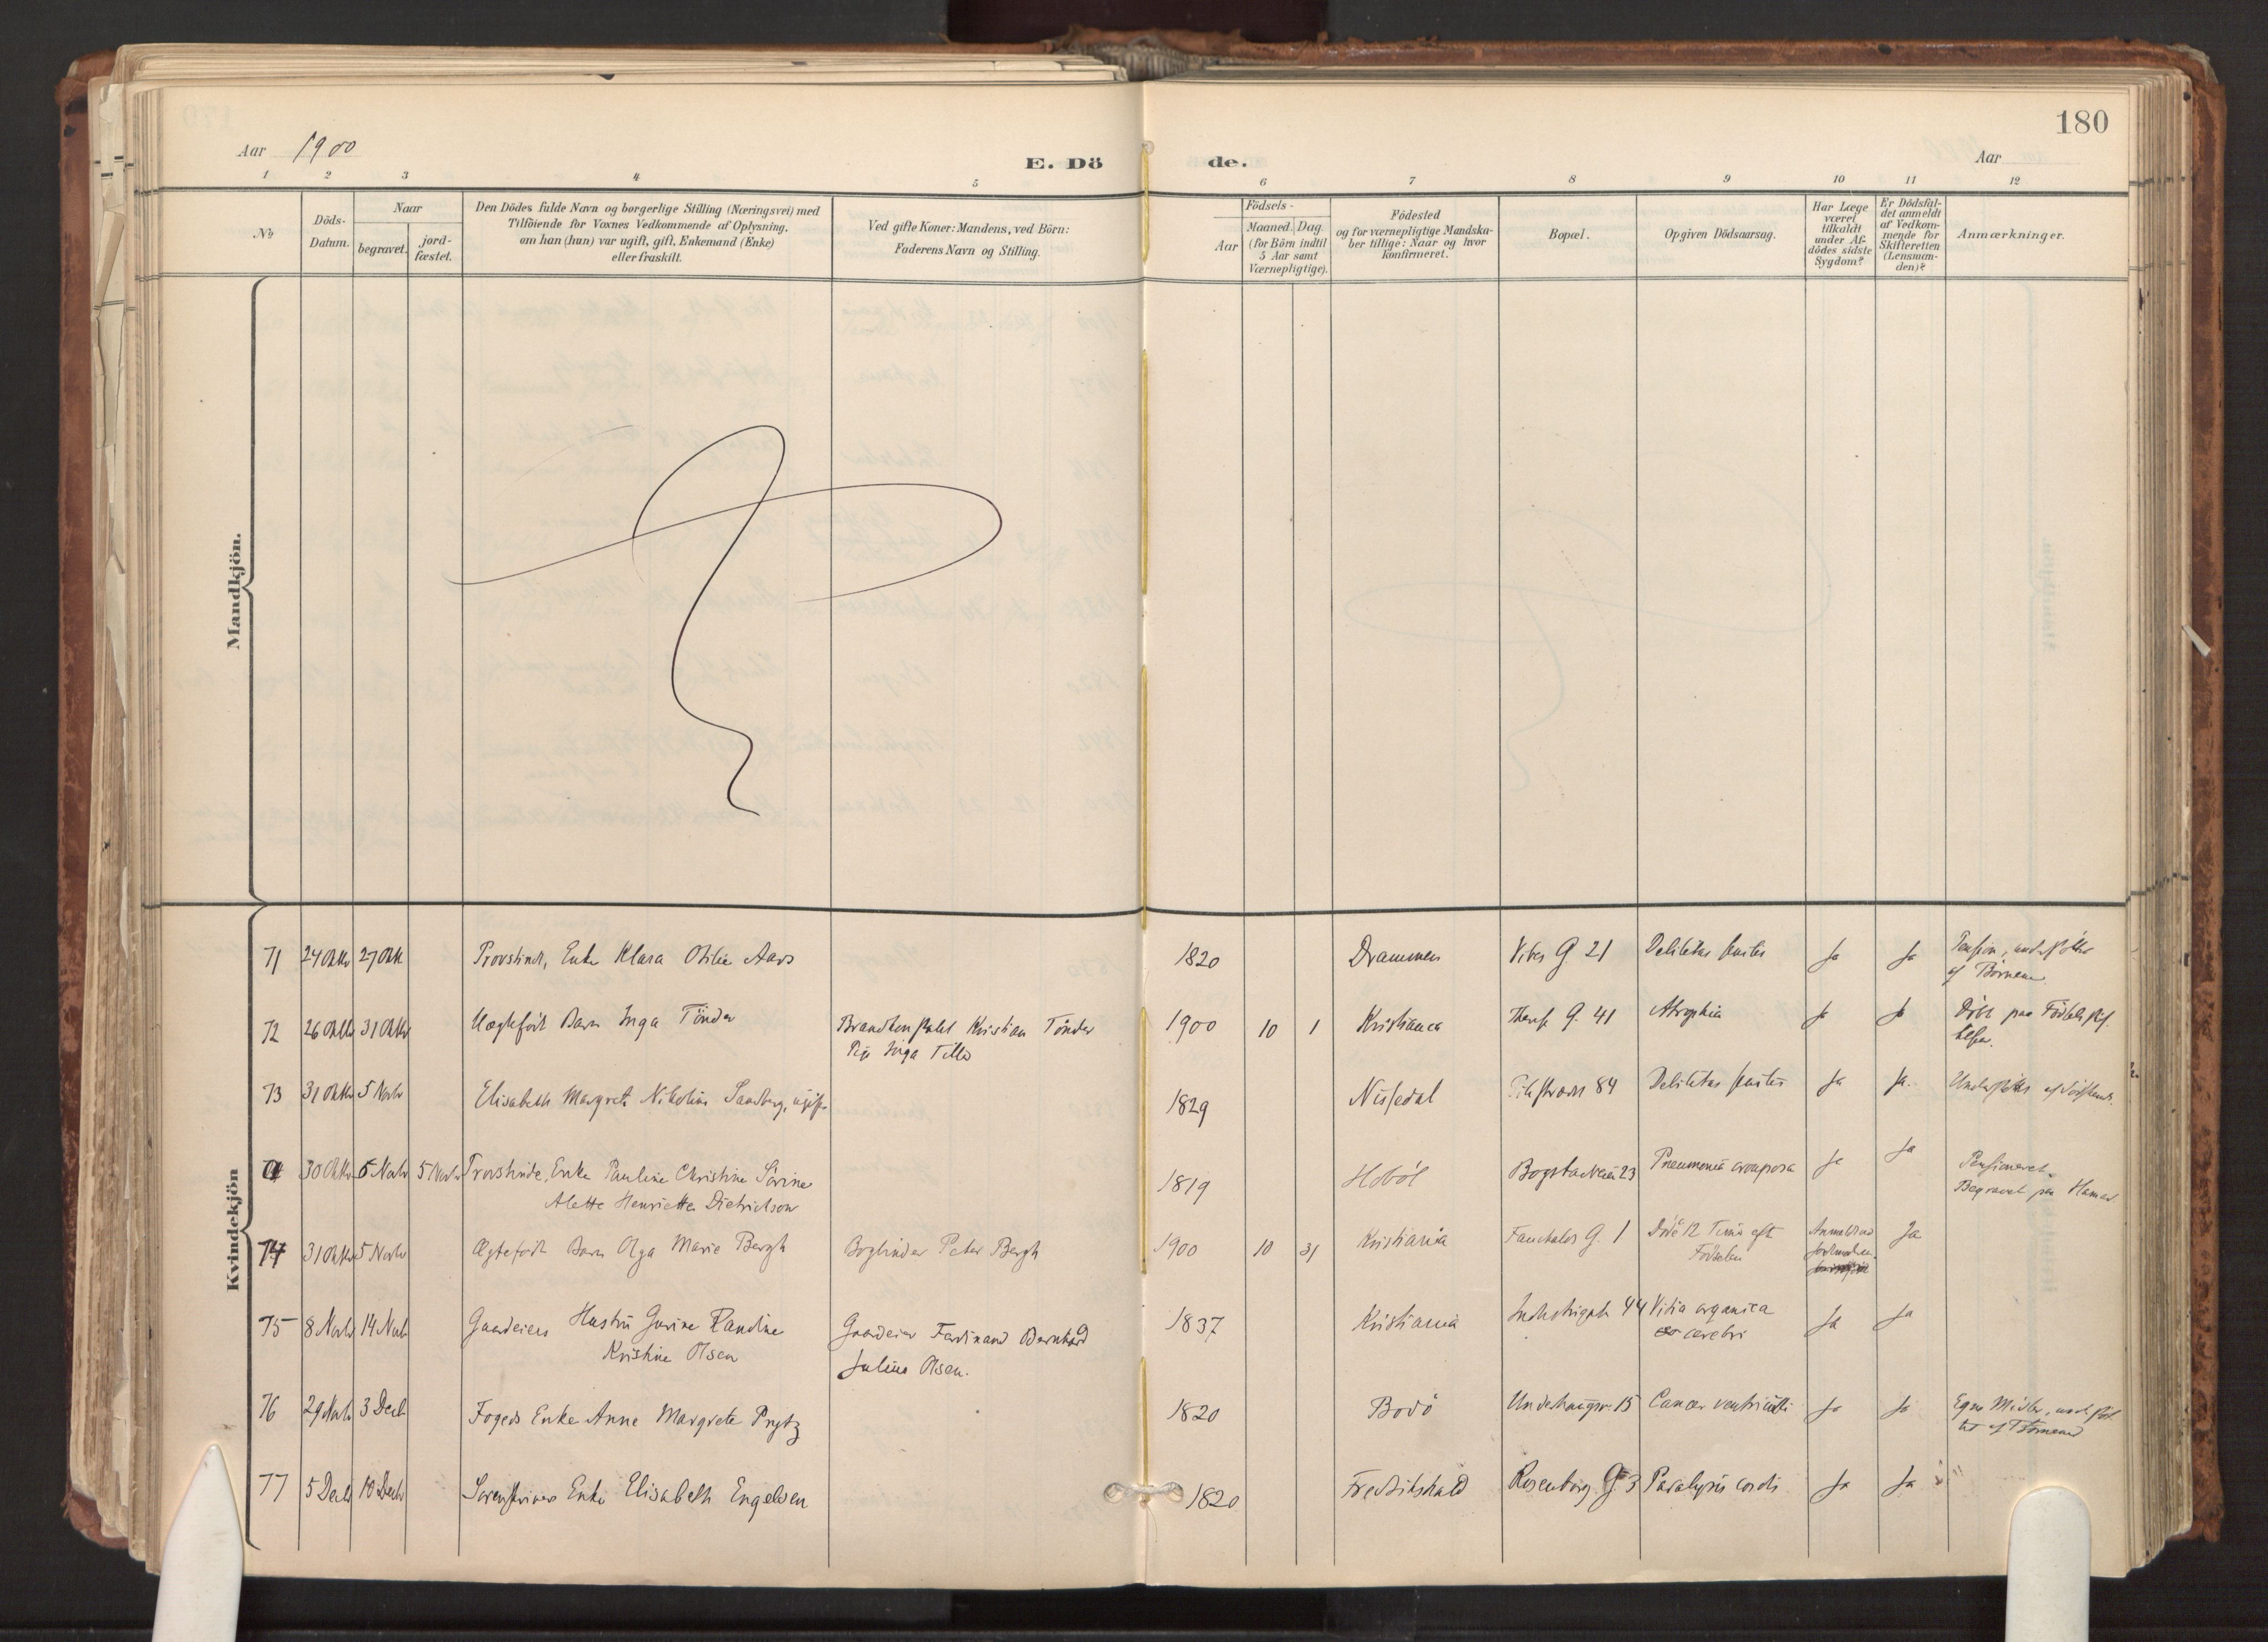 180
Aar 1900
E. Dö de.
Aar
1 2 3 4 5 6 7 8 9 10 11 12
№
Döds-
Datum.
Naar
begravet.
jord-
fæstet.
Den Dödes fulde Navn og borgerlige Stilling (Næringsvei) med
Tilföiende for Voxnes Vedkommende af Oplysning.
om han (hun) var ugift, gift, Enkemand (Enke)
eller fraskilt.
Ved gifte Koner: Mandens, ved Börn:
Faderens Navn og Stilling.
Födsels-
Aar
Maaned. Dag
(for Börn indtil
5 Aar samt
Værnepligtige).
Födested
og for værnepligtige Mandska-
ber tillige: Naar og hvor
konfirmeret.
Bopæl.
Opgiven Dödsaarsag.
Har Læge
været
tilkaldt
under Af-
dödes sidste
Sygdom?
Er Dödsfal-
det anmeldt
af Vedkom-
mende for
Skifteretten
(Lensman-
den)?
Anmærkninger.
Mandkjön.
Kvindekjön
71 24 Oktbr 27 Okt Provstinde, Enke Klara Otilie Aars 1820 Drammen Vibes G 21 Debilitas Ja Ja Pension,
af Börnene
72 26 Oktbr 31 Oktbr Uægtefödt Barn Inga Tönder Kristian Tönder 1900 10 1 Kristiania Theres G. 41 Atrophia Ja Ja Döbt paa
Pige Inga
73 31 Oktbr 5 Novbr Elisabeth Margrete Nikoline Sandberg, ugift 1829 Nissedal 84 Debilitas Ja Ja. Understöttes af
30 Oktbr 6 Novbr 5 Novbr Provstinde, Enke Pauline Christine Sörine 1819 Hoböl Bogstadveien 23 Pneumonia crouposa Ja Ja Pensioneret.
Alette Henriette Dietrichson Begravet paa Hamar
74 31 Oktbr 5 Novbr Ægtefödt Barn Olga Marie Bergh Bogbinder Peter Bergh 1900 10 31 Kristiania Fauchalds G. 1 Döde 12 Timer eft Ja
Födselen
75 8 Novbr 14 Novb Gaardeiers Hustru Gurine Pauline Gaardeier Ferdinand Bernhard 1837 Kristiania Industrigt. 44 Vitia organica Ja Ja
Kristine Olsen Julius Olsen. cerebri
76 29 Novbr 3 Decb Fogeds Enke Anne Margrete Prytz 1820 Bodö Underhaugsv 15 Cancer ventriculi Ja Ja Egne Midler,
af Börnene
77 5 Decbr 10 Decbr Sorenskrivers Enke Elisabeth Engelsen 1820 Fredrikshald Rosenborg G 3 Paralysis cordis Ja Ja